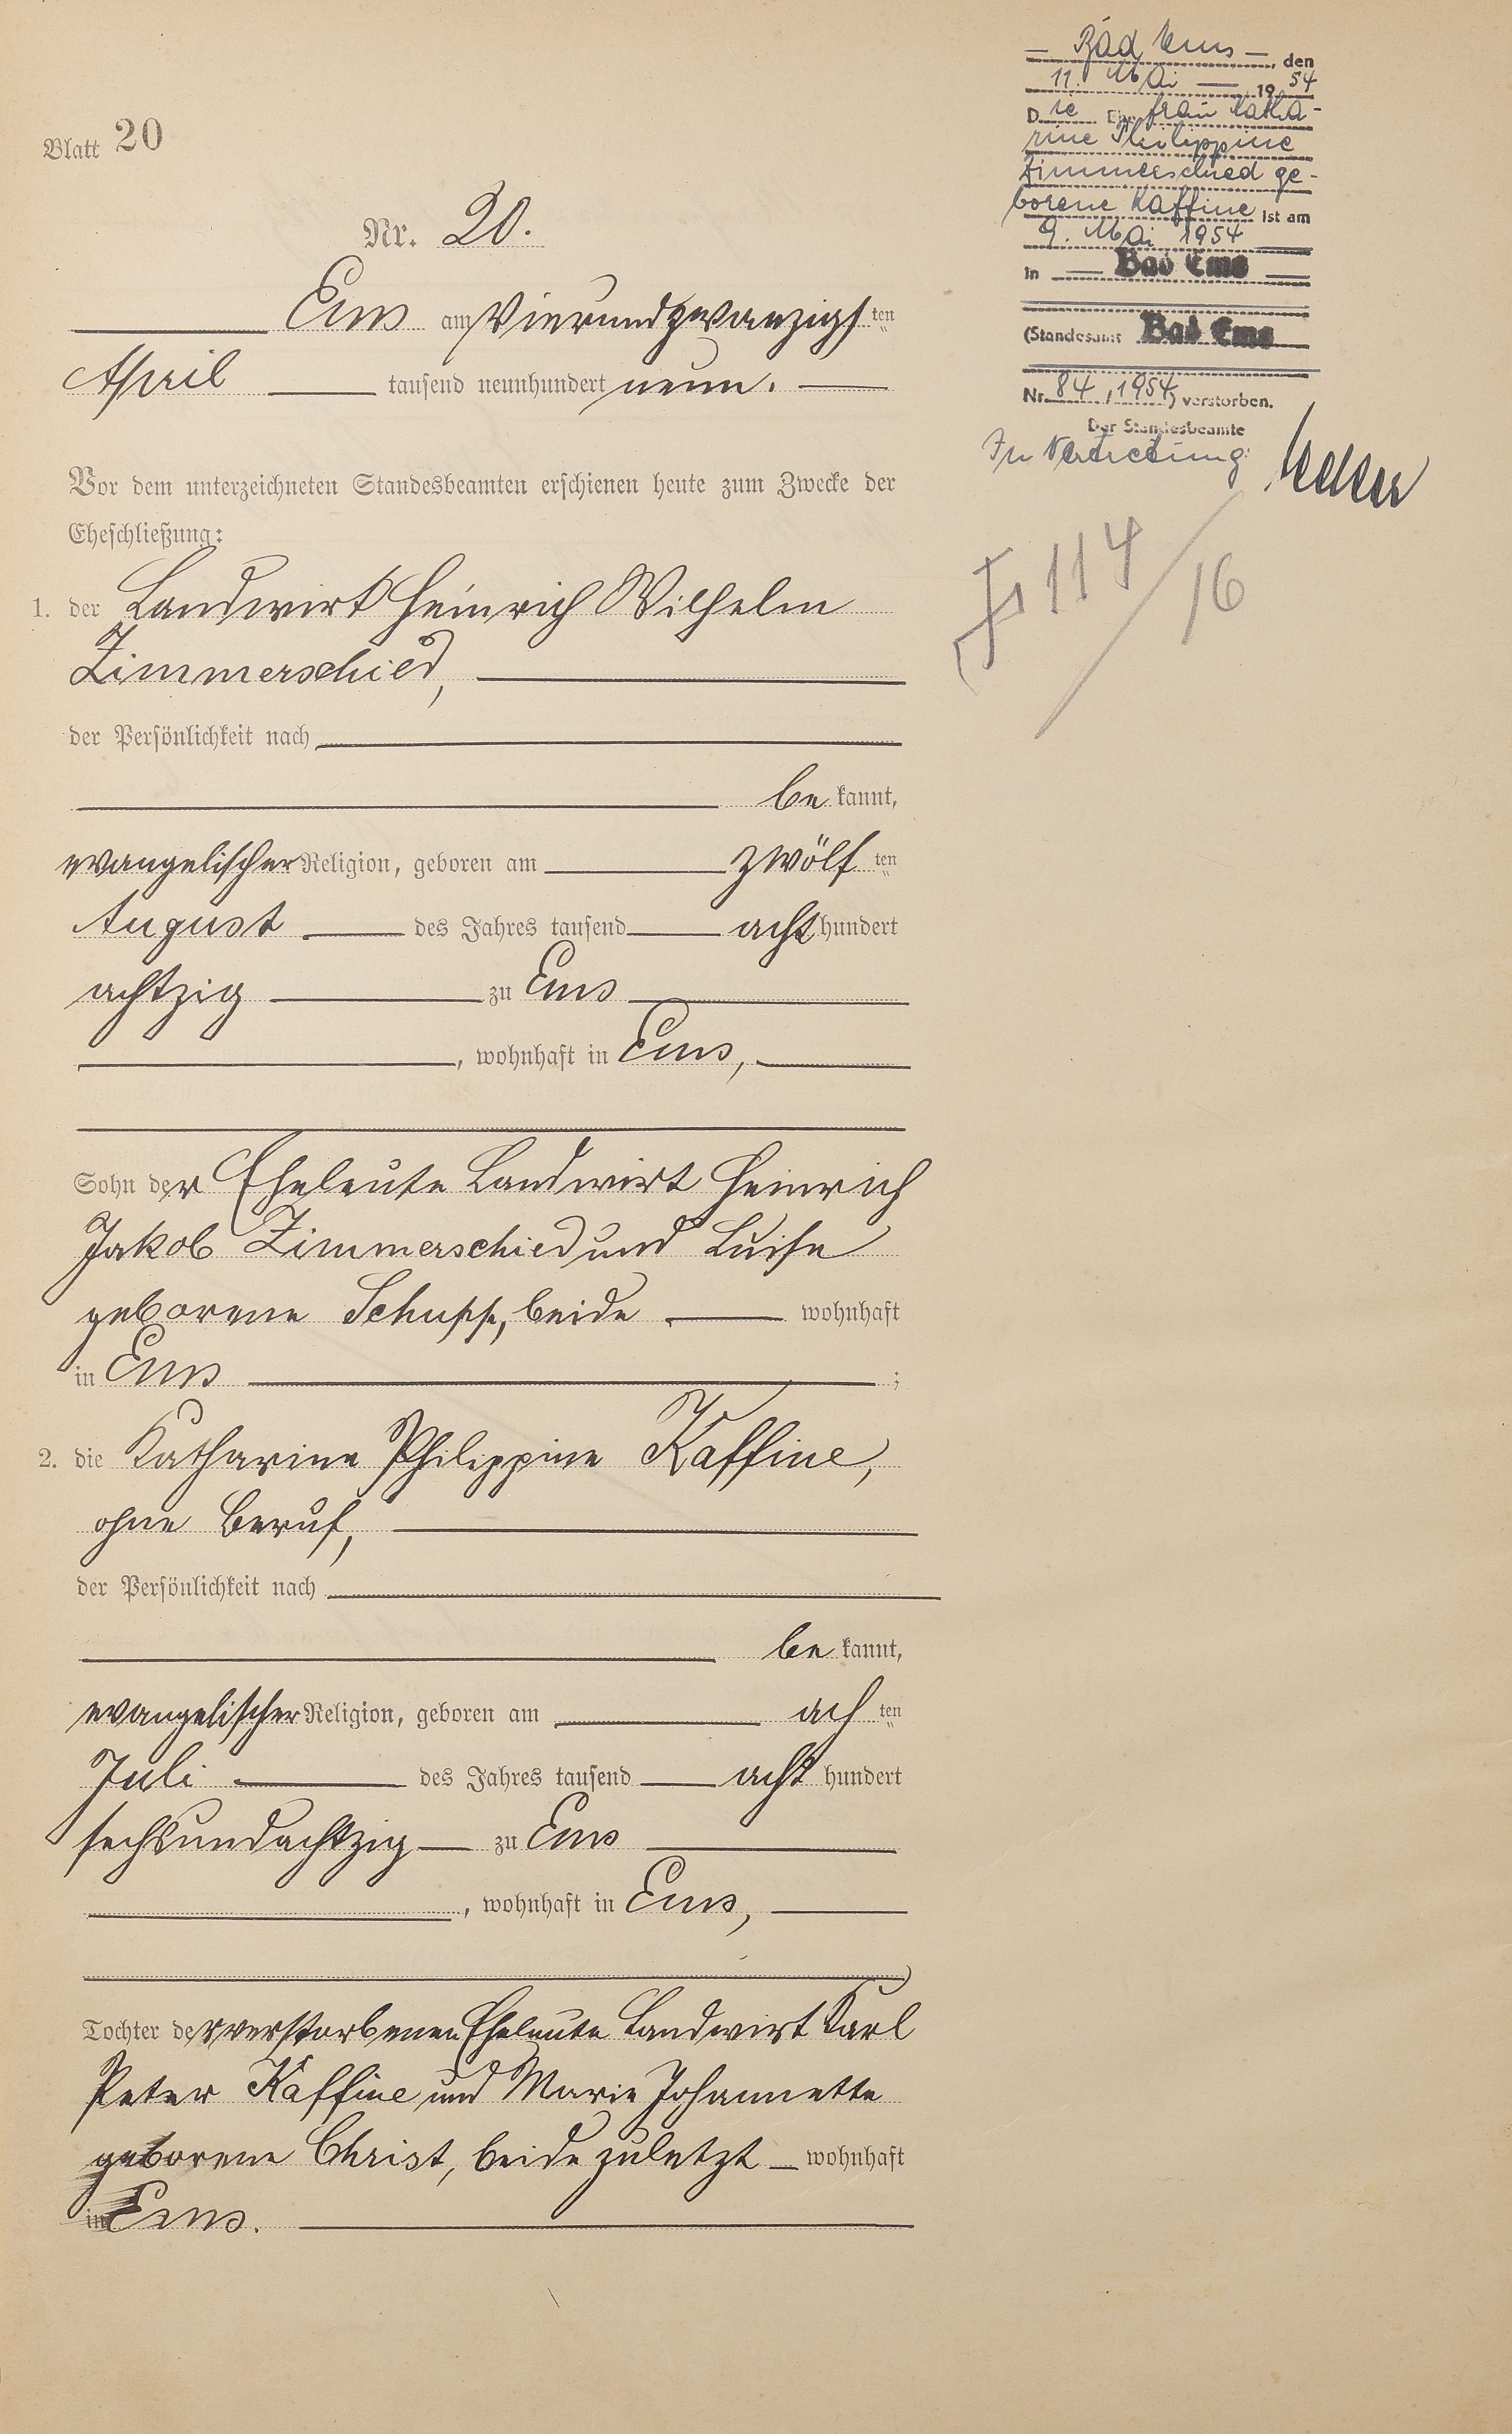 Blatt 20
Nr. 20.
Ems am Vierundzwanzigsten
April tausend neunhundert neun.
Vor dem unterzeichneten Standesbeamten erschienen heute zum Zwecke der
Eheschließung:
1. der Landwirt Heinrich Wilhelm
Zimmerschied,
der Persönlichkeit nach
bekannt,
evangelischer Religion, geboren am zwölften
August des Jahres tausend achthundert
achtzig zu Ems
, wohnhaft in Ems,
Sohn der Eheleute Landwirt Heinrich
Jakob Zimmerschied und Luise
geborene Schupp, beide wohnhaft
in Ems ;
2. die Katharine Philippine Kaffine,
ohne Beruf,
der Persönlichkeit nach
bekannt,
evangelischer Religion, geboren am achten
Juli des Jahres tausend achthundert
sechsundachtzig zu Ems
, wohnhaft in Ems,
Tochter der verstorbenen Eheleute Landwirt Karl
Peter Kaffine und Marie Johannette
geborene Christ, beide zuletzt wohnhaft
in Ems.
Bad Ems, den
11. Mai 1954
Die Ehefrau Katha-
rine Philippine
Zimmerschied ge-
borene Kaffine ist am
9. Mai 1954
in Bad Ems
(Standesamt Bad Ems
Nr. 84/1954) verstorben.
Der Standesbeamte
In Vertretung:
114/16